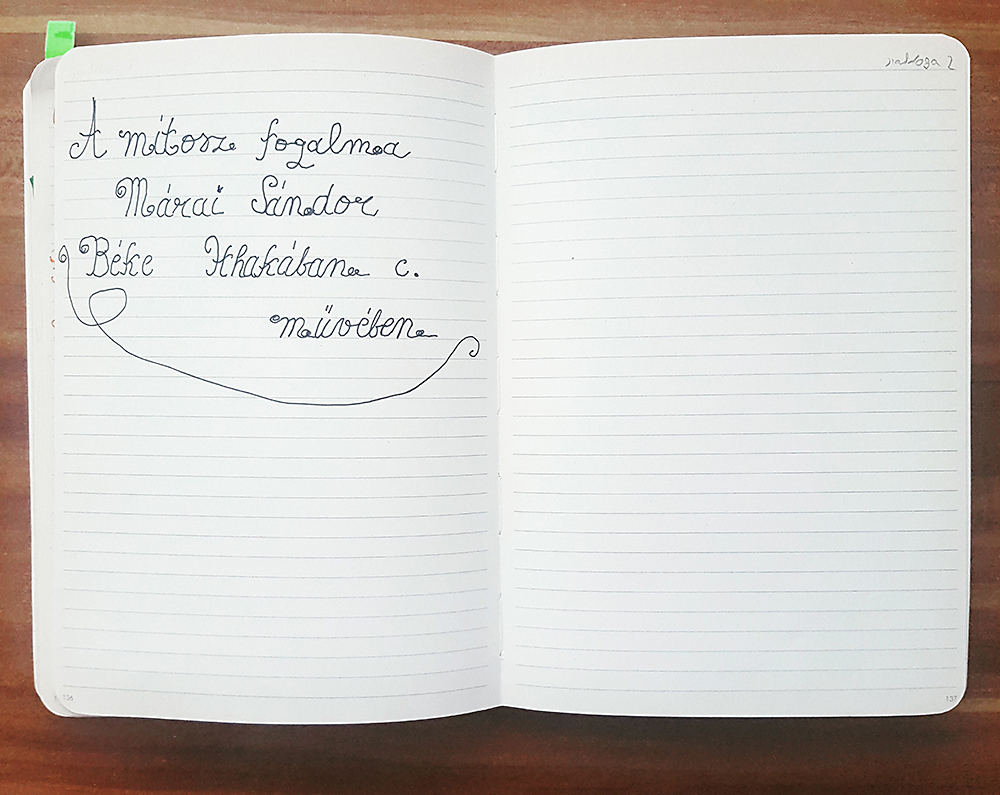 A mítosz fogalma
Márai Sándor
Béke Ithakában c.
művében
136
137